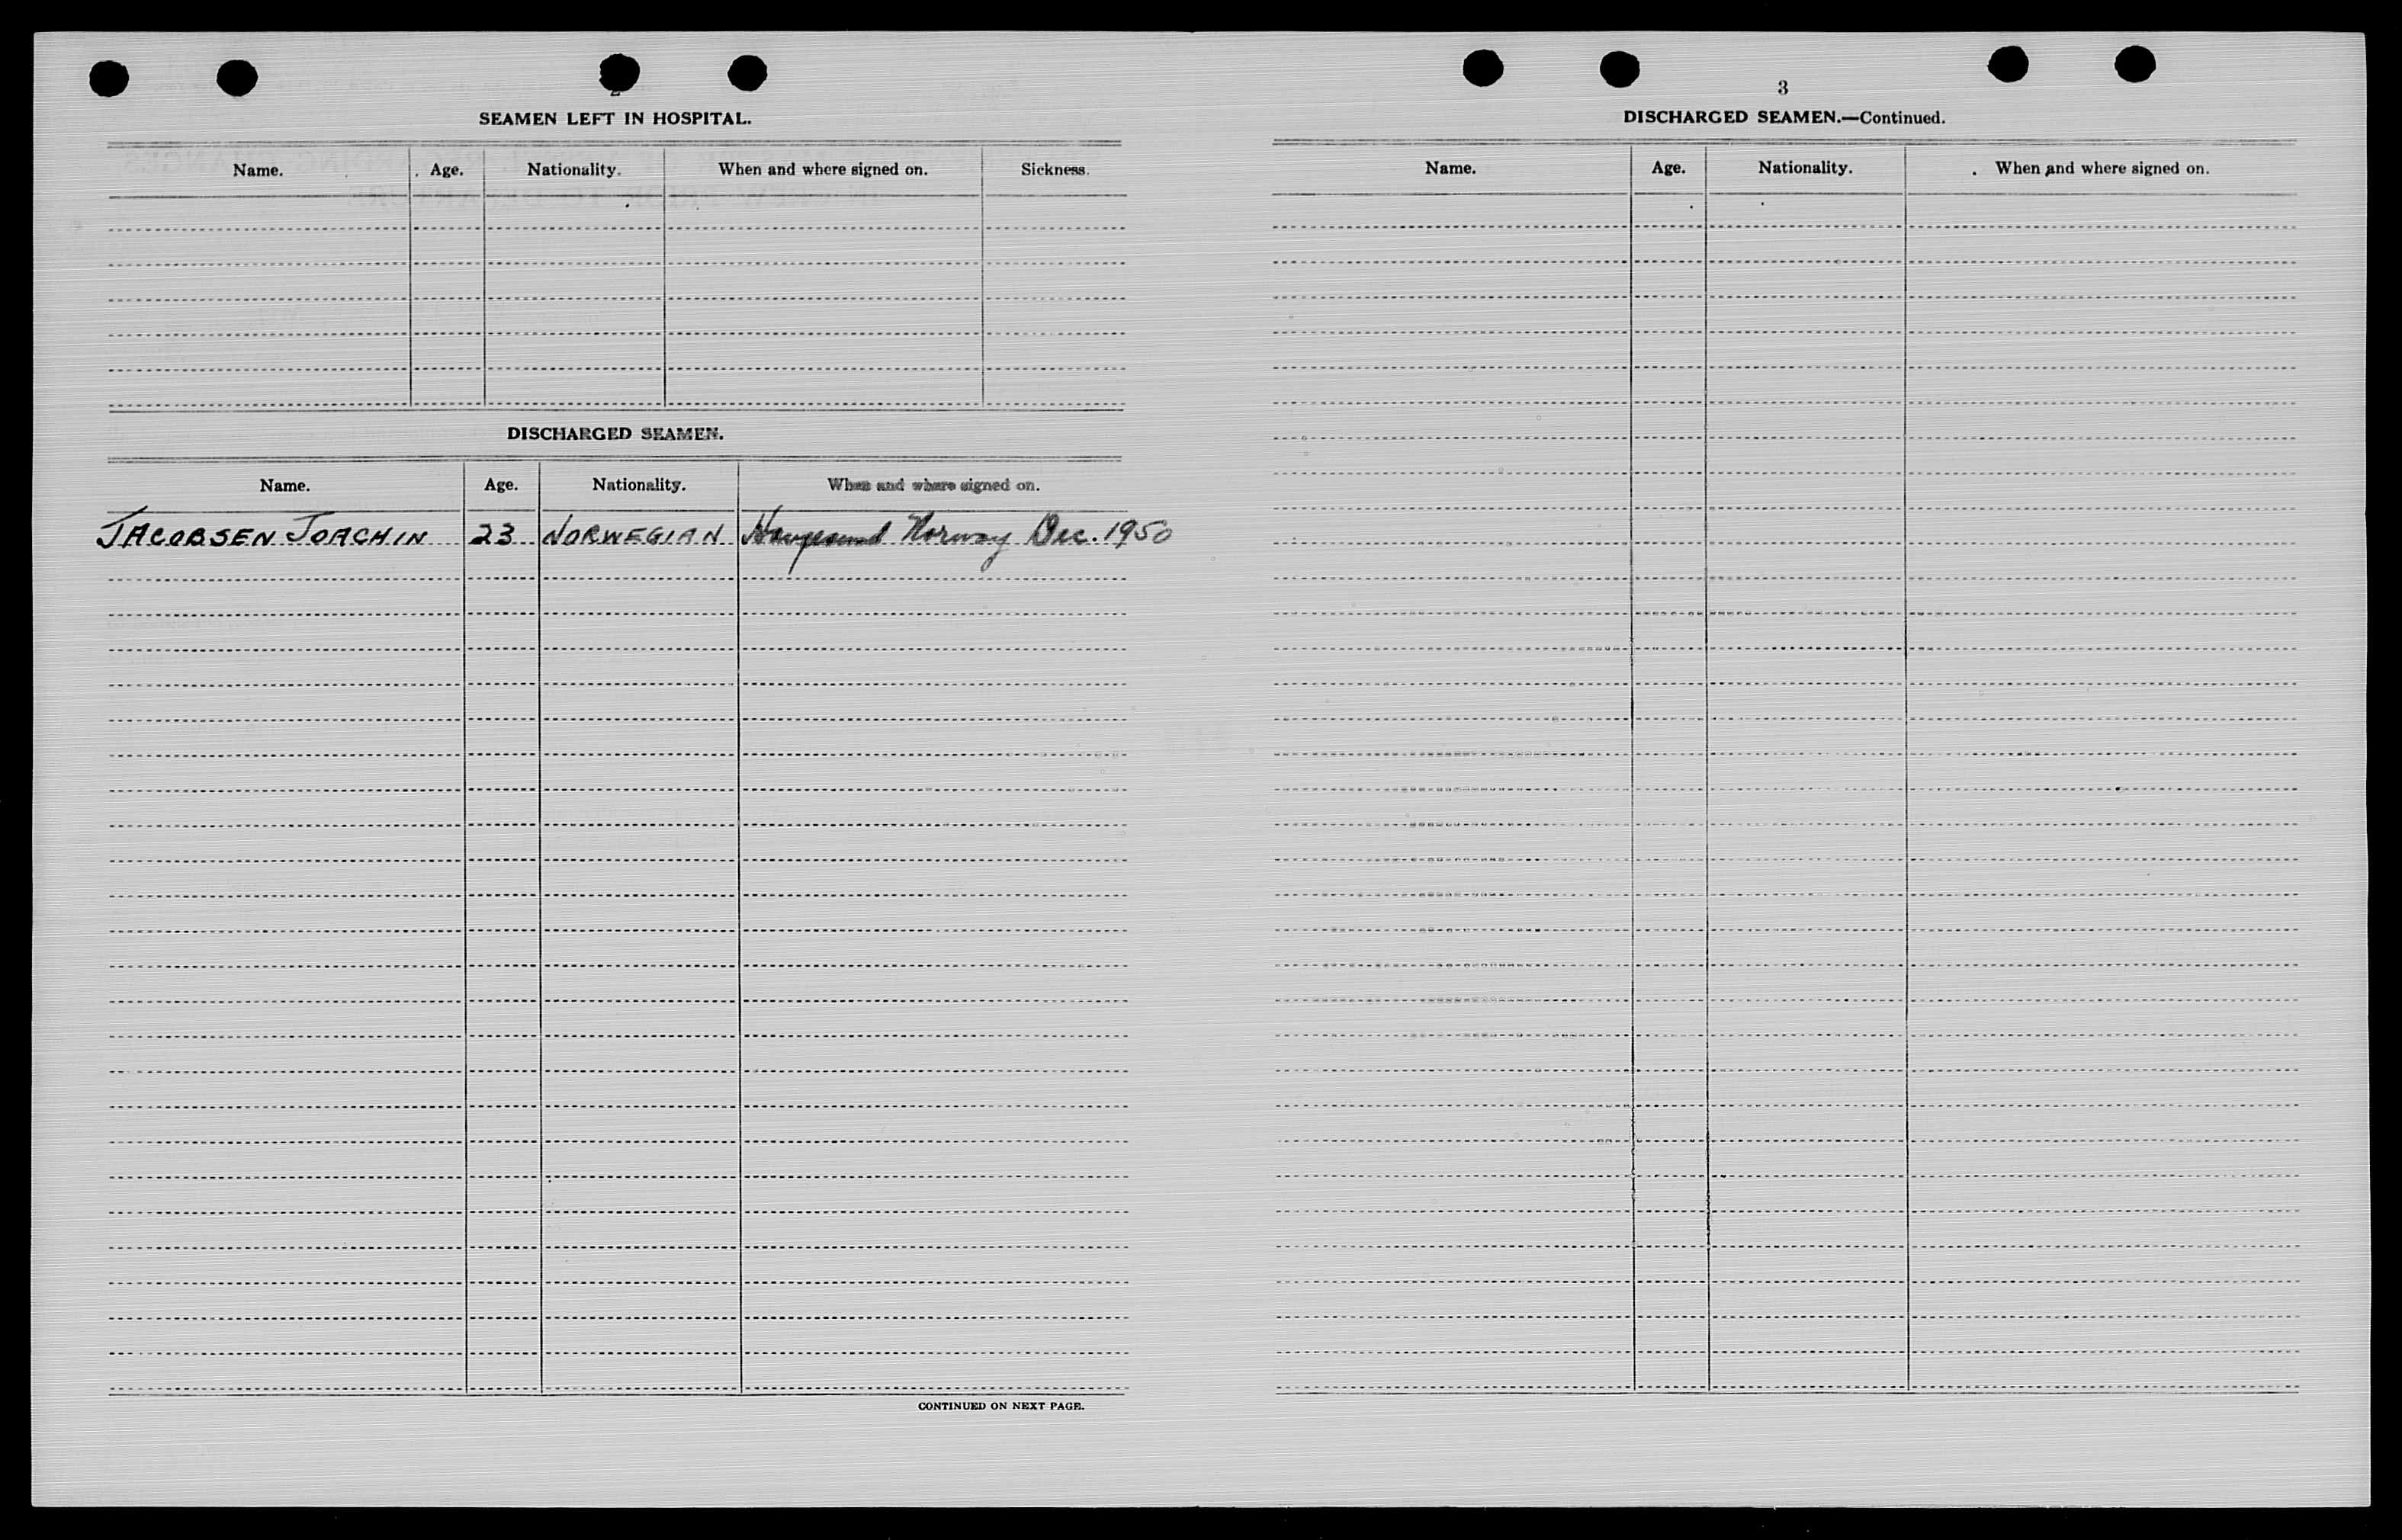 2
SEAMEN LEFT IN HOSPITAL.
Name. Age. Nationality. When and where signed on. Sickness.
DISCHARGED SEAMEN.
Name. Age. Nationality. When and where signed on.
JACOBSEN JOACHIN 23 NORWEGIAN Haugesund Norway Dec. 1950
CONTINUED ON NEXT PAGE.
3
DISCHARGED SEAMEN.—Continued.
Name. Age. Nationality. When and where signed on.